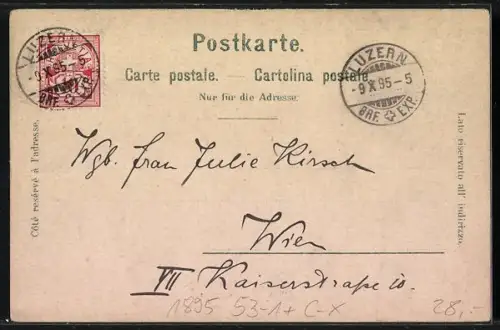 Postkarte.
Carte postale. — Cartolina postale
Nur für die Adresse.
LUZERN
-9 X 95-5
BRF. EXP.
LUZERN
-9 X 95-5
BRF. EXP.
Côté reservé à l'adresse.
Lato riservato all' indirizzo.
Wgb. Frau Julie Kirsch
Wien
VII Kaiserstraße 10.
1895 53-1+ C-X
28,-